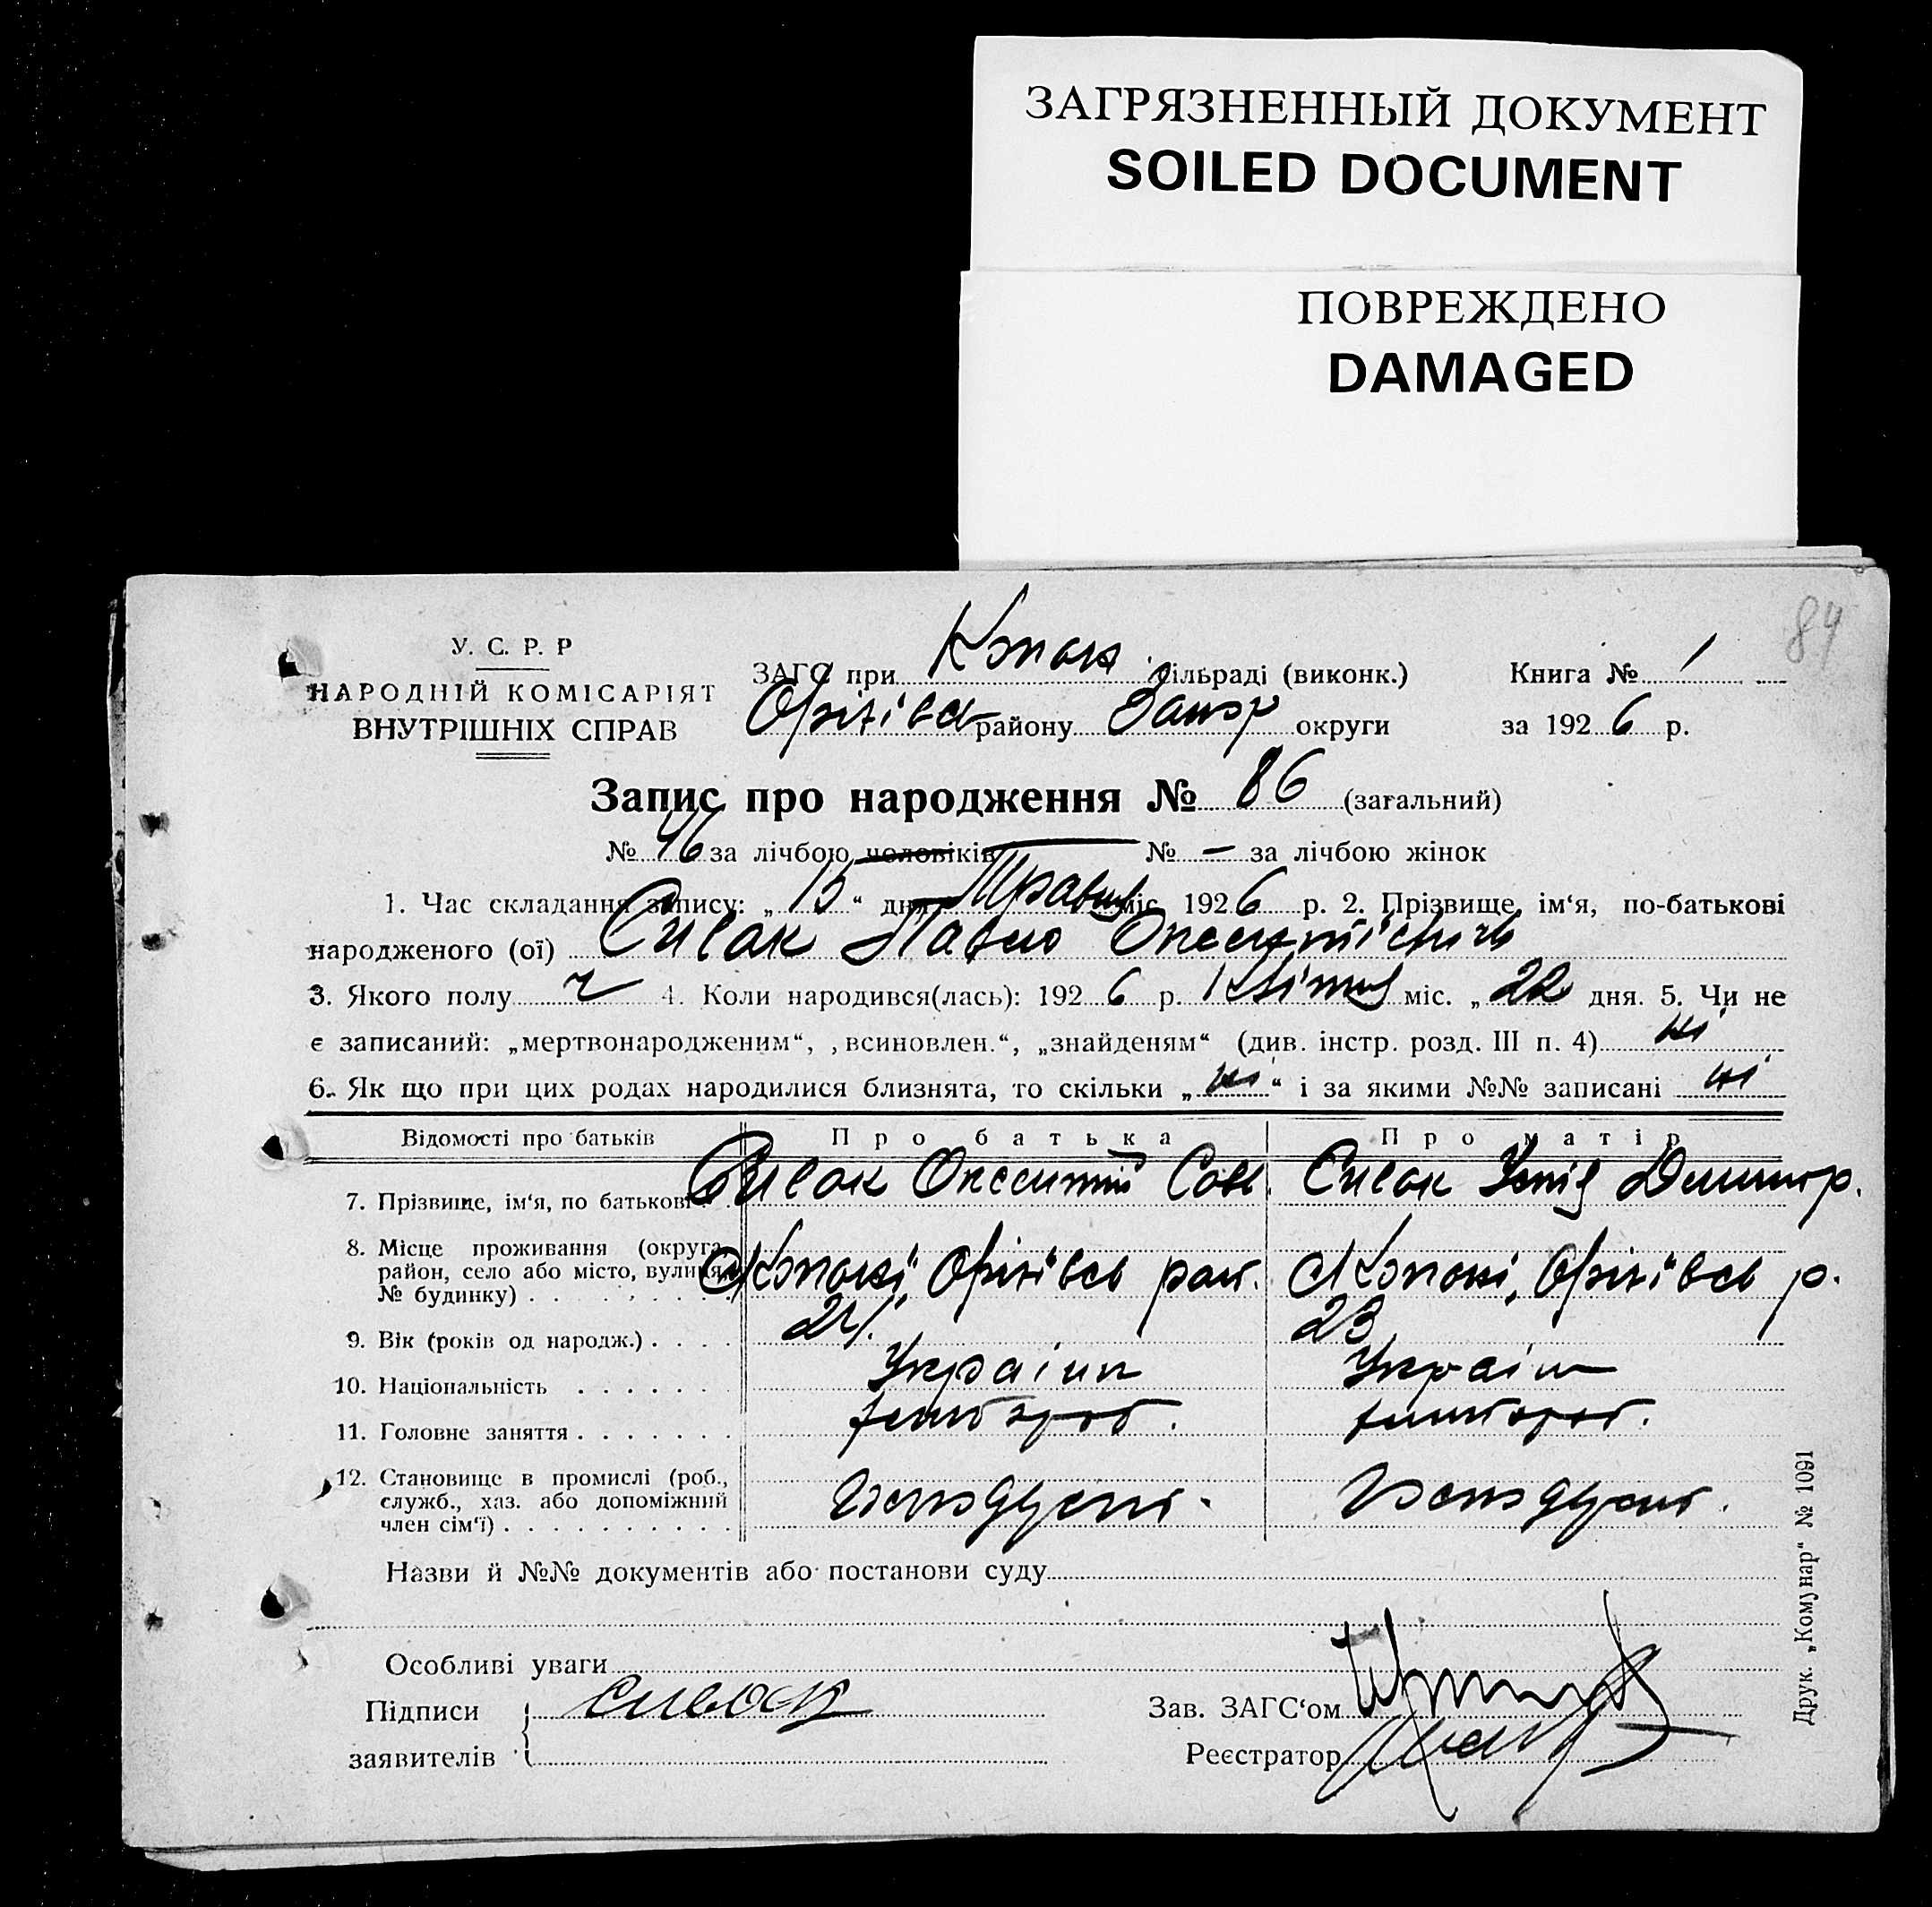 ЗАГРЯЗНЕННЫЙ ДОКУМЕНТ
SOILED DOCUMENT
ПОВРЕЖДЕНО
DAMAGED
84
У. С. Р. Р
НАРОДНІЙ КОМІСАРІЯТ
ВНУТРІШНІХ СПРАВ
ЗАГС при Копан сільраді (виконк.) Книга № 1
Оріхівсь району Запор округи за 1926 р.
Запис про народження № 86 (загальний)
№ 46 за лічбою чоловіків № — за лічбою жінок
1. Час складання запису: „15“ дня Травня міс. 1926 р. 2. Прізвище, ім‘я, по-батькові
народженого (ої) Сивак Павло
3. Якого полу ч 4. Коли народився(лась): 1926 р. Квітня міс. „22 дня. 5. Чи не
є записаний: „мертвонародженим“, „всиновлен.“, „знайденям“ (див. інстр. розд. III п. 4) ні
6. Як що при цих родах народилися близнята, то скільки „ні“ і за якими №№ записані ні
Відомості про батьків Про батька Про матір
7. Прізвище, ім‘я, по батькові . . Сивак Сав. Сивак Дмитр.
8. Місце проживання (округа, район, село або місто, вулиця, № будинку) . . . . . . Копані, Оріхівсь рай. с Копані, Оріхівсь р.
9. Вік (років од народж.) . . . . 24 23
10. Національність . . . . . . . Україн Україн
11. Головне заняття . . . . . . .
12. Становище в промислі (роб., служб., хаз. або допоміжний член сім‘ї) . . . . . . . . . .
Назви й №№ документів або постанови суду
Особливі уваги
Підписи Сивак Зав. ЗАГС‘ом
заявителів Реєстратор
Друк. „Комунар“ № 1091